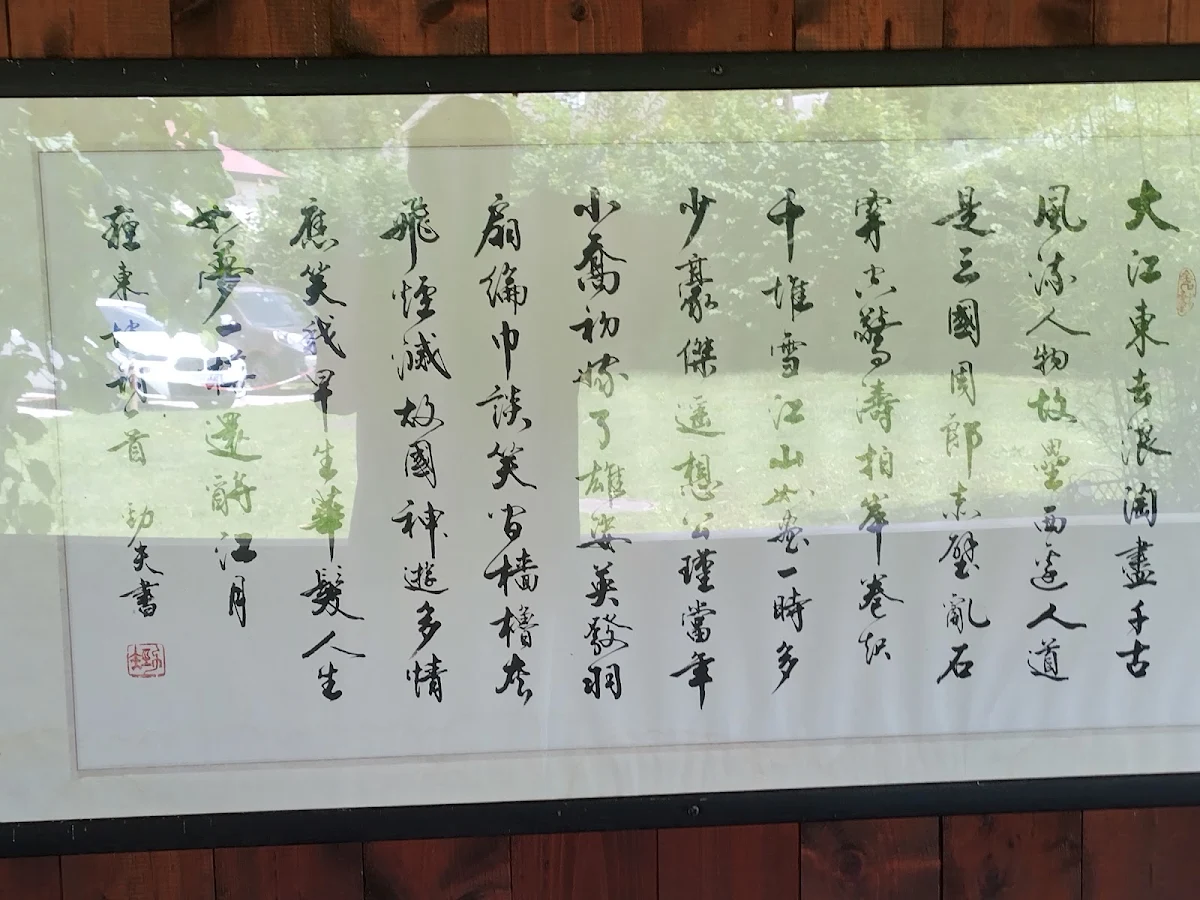 大江東去浪淘盡千古
風流人物故壘西邊人道
是三國周郎赤壁亂石
穿空驚濤拍岸卷起
千堆雪江山如畫一時多
少豪傑遥想公瑾當年
小喬初嫁了雄姿英發羽
扇綸巾談笑間檣櫓灰
飛煙滅故國神遊多情
應笑我早生華髮人生
如夢一樽還酹江月
東坡詞一首 勁夫書